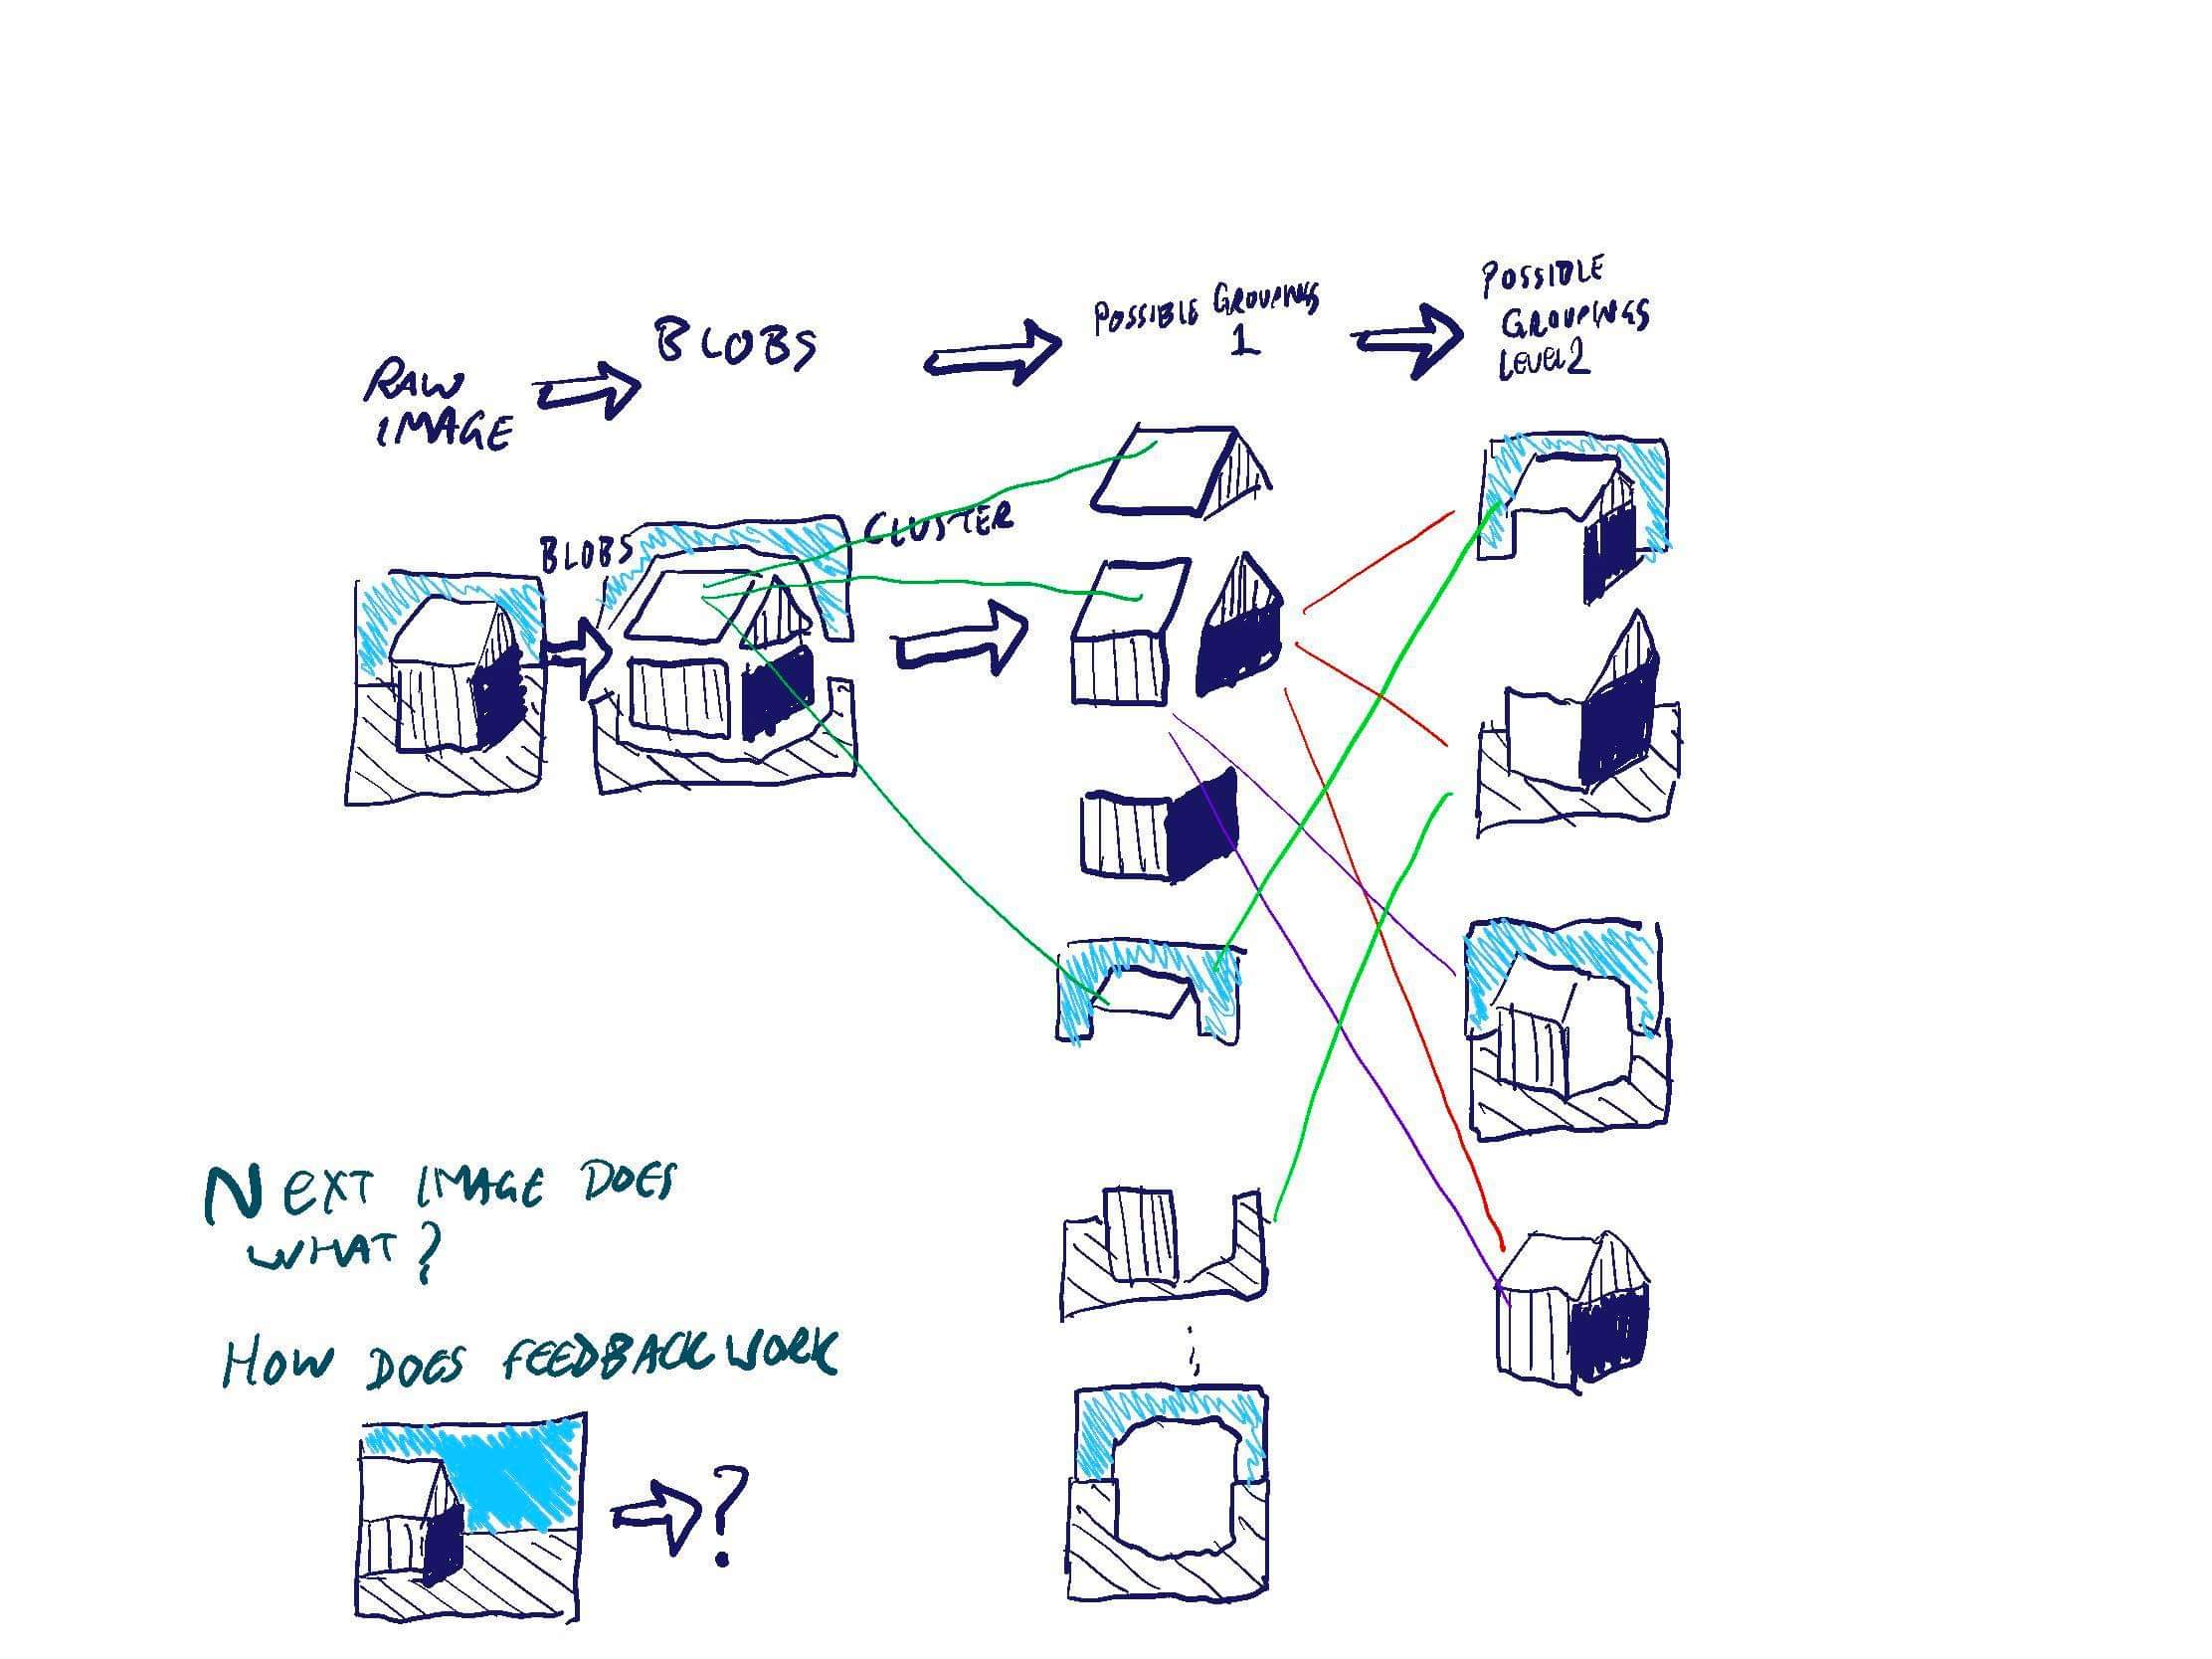 RAW
IMAGE
BLOBS
POSSIBLE GROUPINGS
1
POSSIBLE
GROUPINGS
LEVEL 2
BLOBS
CLUSTER
NEXT IMAGE DOES
WHAT?
HOW DOES FEEDBACK WORK
?